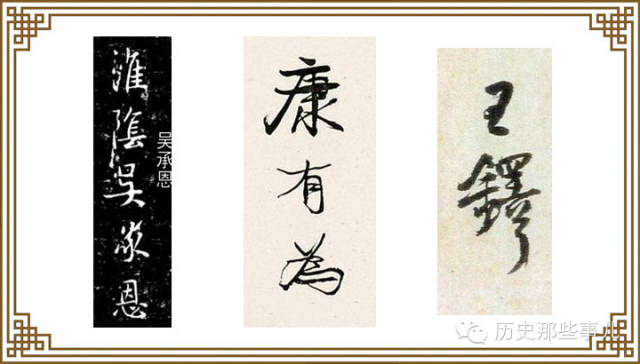 淮陰吴承恩
吴承恩
康有為
王鐸
历史那些事儿